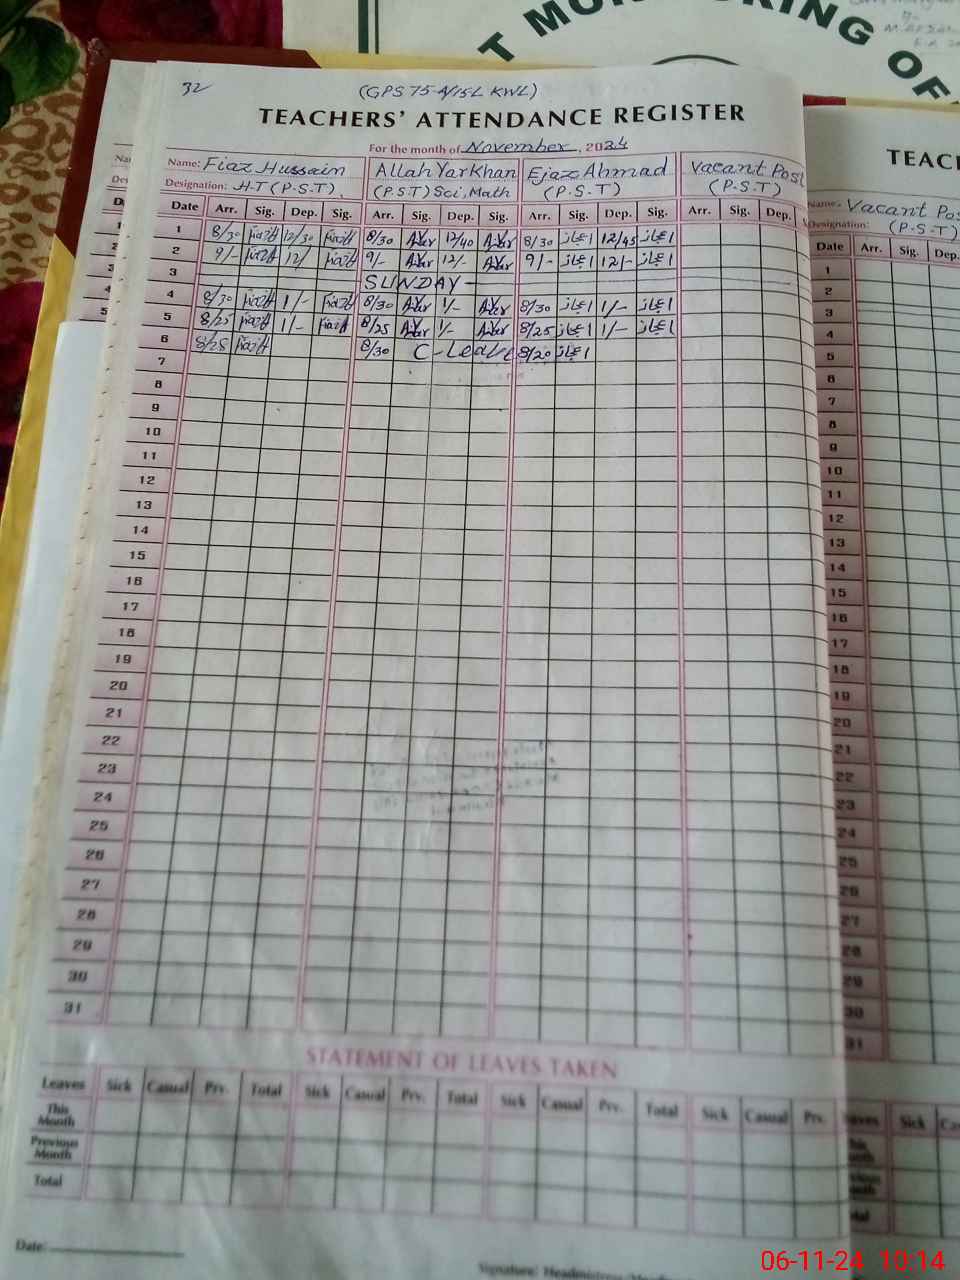 T MONITORING OF
32
(GPS 75-A/15L KWL)
TEACHERS' ATTENDANCE REGISTER
For the month of November, 2024
Name: Fiaz Hussain Allah Yar Khan Ejaz Ahmad Vacant Post
Designation: H-T (P.S.T) (P.S.T) Sci, Math (P.S.T) (P.S.T)
Date Arr. Sig. Dep. Sig. Arr. Sig. Dep. Sig. Arr. Sig. Dep. Sig. Arr. Sig. Dep.
1 8/30 Fiaz H 12/30 Fiaz H 8/30 AYar 12/40 AYar 8/30 اعجاز 12/45 اعجاز
2 9/- Fiaz H 12/ Fiaz H 9/- AYar 12/- AYar 9/- اعجاز 12/- اعجاز
3 SUNDAY-
4 8/30 Fiaz H 1/- Fiaz H 8/30 AYar 1/- AYar 8/30 اعجاز 1/- اعجاز
5 8/25 Fiaz H 1/- Fiaz H 8/25 AYar 1/- AYar 8/25 اعجاز 1/- اعجاز
6 8/28 Fiaz H 8/30 C-Leave 8/20 اعجاز
7
8
9
10
11
12
13
14
15
16
17
18
19
20
21
22
23
24
25
26
27
28
29
30
31
STATEMENT OF LEAVES TAKEN
Leaves Sick Casual Prv. Total Sick Casual Prv. Total Sick Casual Prv. Total Sick Casual Prv.
This Month
Previous Month
Total
Date:
Signature:
TEAC
Name. Vacant Pos
(P.S.T)
Date Arr. Sig. Dep.
1
2
3
4
5
6
7
8
9
10
11
12
13
14
15
16
17
18
19
20
21
22
23
24
25
26
27
28
29
30
31
Sick
06-11-24 10:14